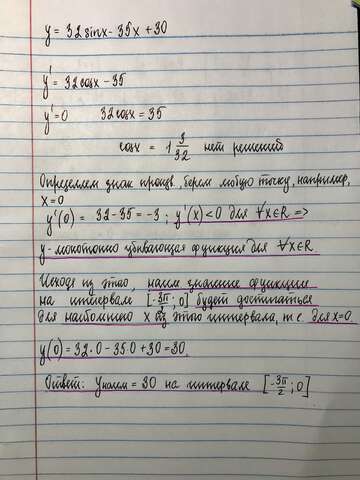 y = 32sinx - 35x + 30
y' = 32cosx - 35
y' = 0 32cosx = 35
cosx = 1 3/32 нет решений
Определяем знак произв., берем любую точку, например,
x = 0
y'(0) = 32 - 35 = -3 ; y'(x) < 0 для ∀x∈R =>
y - монотонно убывающая функция для ∀x∈R
Исходя из этого, наим значение функции
на интервале [-3π/2 ; 0] будет достигаться
для наибольшего x из этого интервала, т.е. для x=0.
y(0) = 32·0 - 35·0 + 30 = 30.
Ответ: yнаим = 30 на интервале [-3π/2 ; 0]